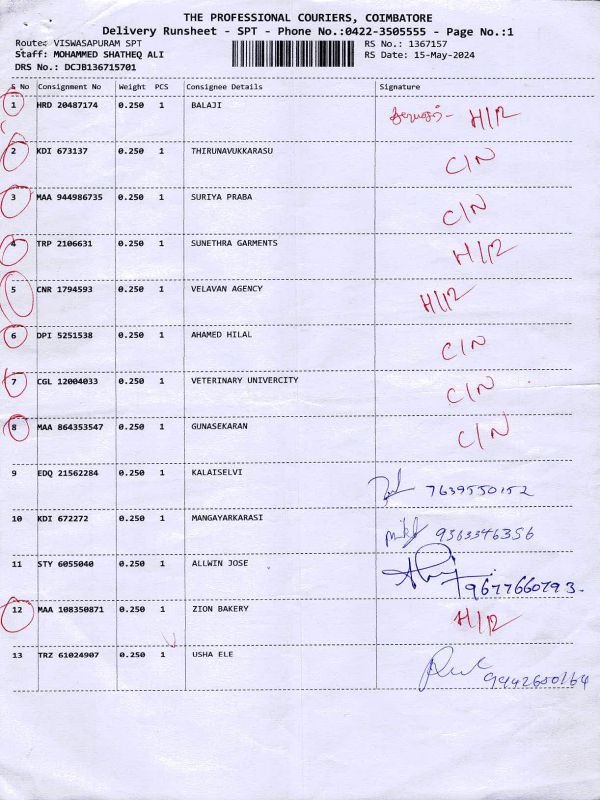 THE PROFESSIONAL COURIERS, COIMBATORE
Delivery Runsheet - SPT - Phone No.:0422-3505555 - Page No.:1
Route: VISWASAPURAM SPT RS No.: 1367157
Staff: MOHAMMED SHATHEQ ALI RS Date: 15-May-2024
DRS No.: DCJB136715701
S No Consignment No Weight PCS Consignee Details Signature
1 HRD 20487174 0.250 1 BALAJI H/R
2 KDI 673137 0.250 1 THIRUNAVUKKARASU C/N
3 MAA 944986735 0.250 1 SURIYA PRABA C/N
4 TRP 2106631 0.250 1 SUNETHRA GARMENTS H/R
5 CNR 1794593 0.250 1 VELAVAN AGENCY H/R
6 DPI 5251538 0.250 1 AHAMED HILAL C/N
7 CGL 12004033 0.250 1 VETERINARY UNIVERCITY C/N
8 MAA 864353547 0.250 1 GUNASEKARAN C/N
9 EDQ 21562284 0.250 1 KALAISELVI 7639550152
10 KDI 672272 0.250 1 MANGAYARKARASI 9363346356
11 STY 6055040 0.250 1 ALLWIN JOSE 9677660793.
12 MAA 108350871 0.250 1 ZION BAKERY H/R
13 TRZ 61024907 0.250 1 USHA ELE 9442650164